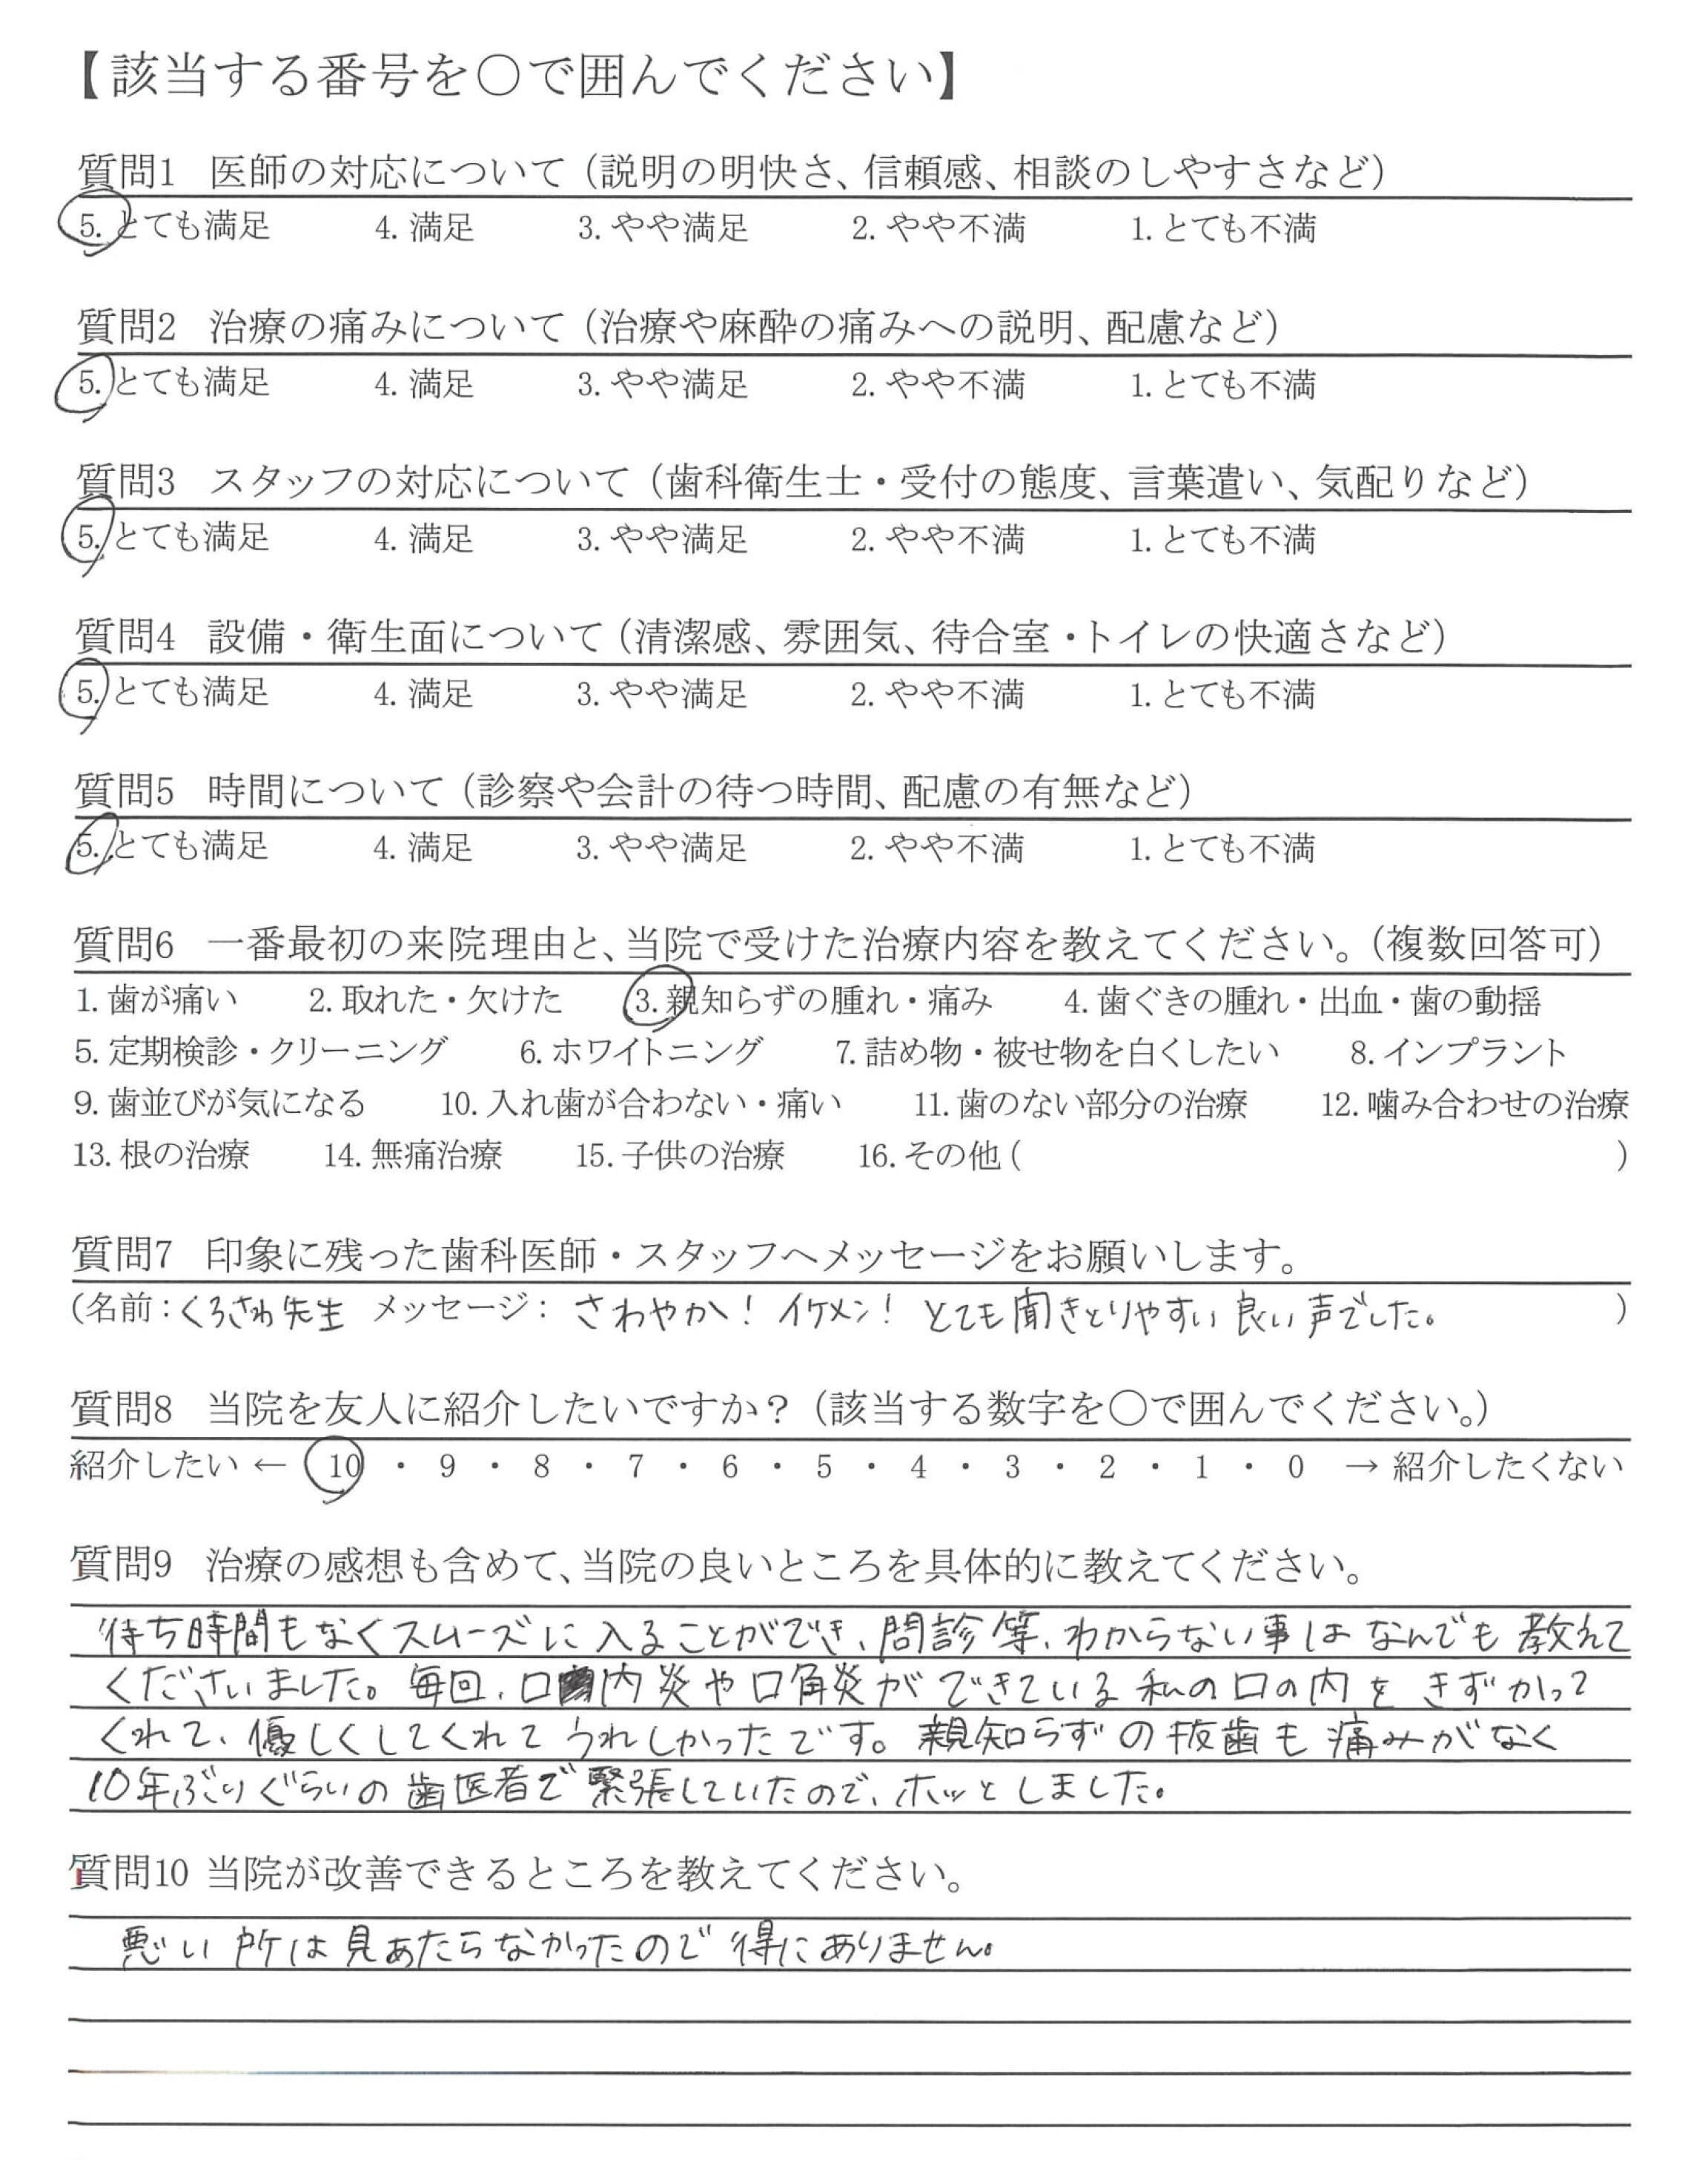 【該当する番号を○で囲んでください】
質問1 医師の対応について（説明の明快さ、信頼感、相談のしやすさなど）
5. とても満足 4. 満足 3. やや満足 2. やや不満 1. とても不満
質問2 治療の痛みについて（治療や麻酔の痛みへの説明、配慮など）
5. とても満足 4. 満足 3. やや満足 2. やや不満 1. とても不満
質問3 スタッフの対応について（歯科衛生士・受付の態度、言葉遣い、気配りなど）
5. とても満足 4. 満足 3. やや満足 2. やや不満 1. とても不満
質問4 設備・衛生面について（清潔感、雰囲気、待合室・トイレの快適さなど）
5. とても満足 4. 満足 3. やや満足 2. やや不満 1. とても不満
質問5 時間について（診察や会計の待つ時間、配慮の有無など）
5. とても満足 4. 満足 3. やや満足 2. やや不満 1. とても不満
質問6 一番最初の来院理由と、当院で受けた治療内容を教えてください。（複数回答可）
1. 歯が痛い 2. 取れた・欠けた 3. 親知らずの腫れ・痛み 4. 歯ぐきの腫れ・出血・歯の動揺
5. 定期検診・クリーニング 6. ホワイトニング 7. 詰め物・被せ物を白くしたい 8. インプラント
9. 歯並びが気になる 10. 入れ歯が合わない・痛い 11. 歯のない部分の治療 12. 噛み合わせの治療
13. 根の治療 14. 無痛治療 15. 子供の治療 16. その他（ ）
質問7 印象に残った歯科医師・スタッフへメッセージをお願いします。
（名前：くろさわ先生 メッセージ： さわやか！イケメン！とても聞きとりやすい良い声でした。 ）
質問8 当院を友人に紹介したいですか？（該当する数字を○で囲んでください。）
紹介したい ← 10 ・ 9 ・ 8 ・ 7 ・ 6 ・ 5 ・ 4 ・ 3 ・ 2 ・ 1 ・ 0 → 紹介したくない
質問9 治療の感想も含めて、当院の良いところを具体的に教えてください。
待ち時間もなくスムーズに入ることができ、問診等、わからない事はなんでも教えて
くださいました。毎回、口内炎や口角炎ができている私の口の内をきずかって
くれて、優しくしてくれてうれしかったです。親知らずの抜歯も痛みがなく
10年ぶりぐらいの歯医者で緊張していたので、ホッとしました。
質問10 当院が改善できるところを教えてください。
悪い所は見あたらなかったので得にありません。